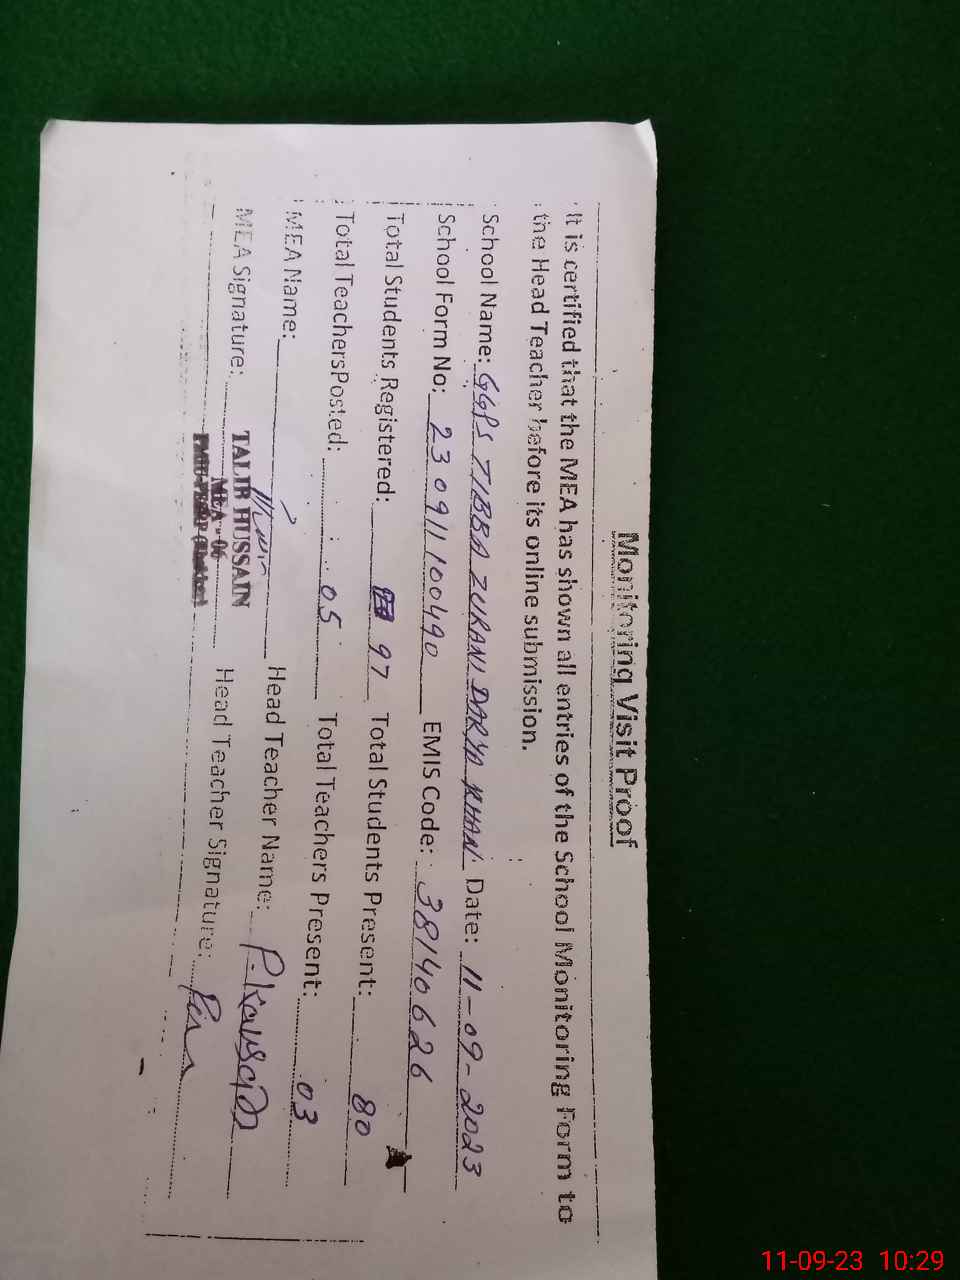 Monitoring Visit Proof
It is certified that the MEA has shown all entries of the School Monitoring Form to
the Head Teacher before its online submission.
School Name: GGPS TIBBA ZURANI DARYA KHAN Date: 11-09-2023
School Form No: 230911100490 EMIS Code: 38140626
Total Students Registered: 97 Total Students Present: 80
Total TeachersPosted: 05 Total Teachers Present: 03
MEA Name: Head Teacher Name: P. Kausar
MEA Signature: Head Teacher Signature:
TALIB HUSSAIN
MEA - 06
11-09-23 10:29